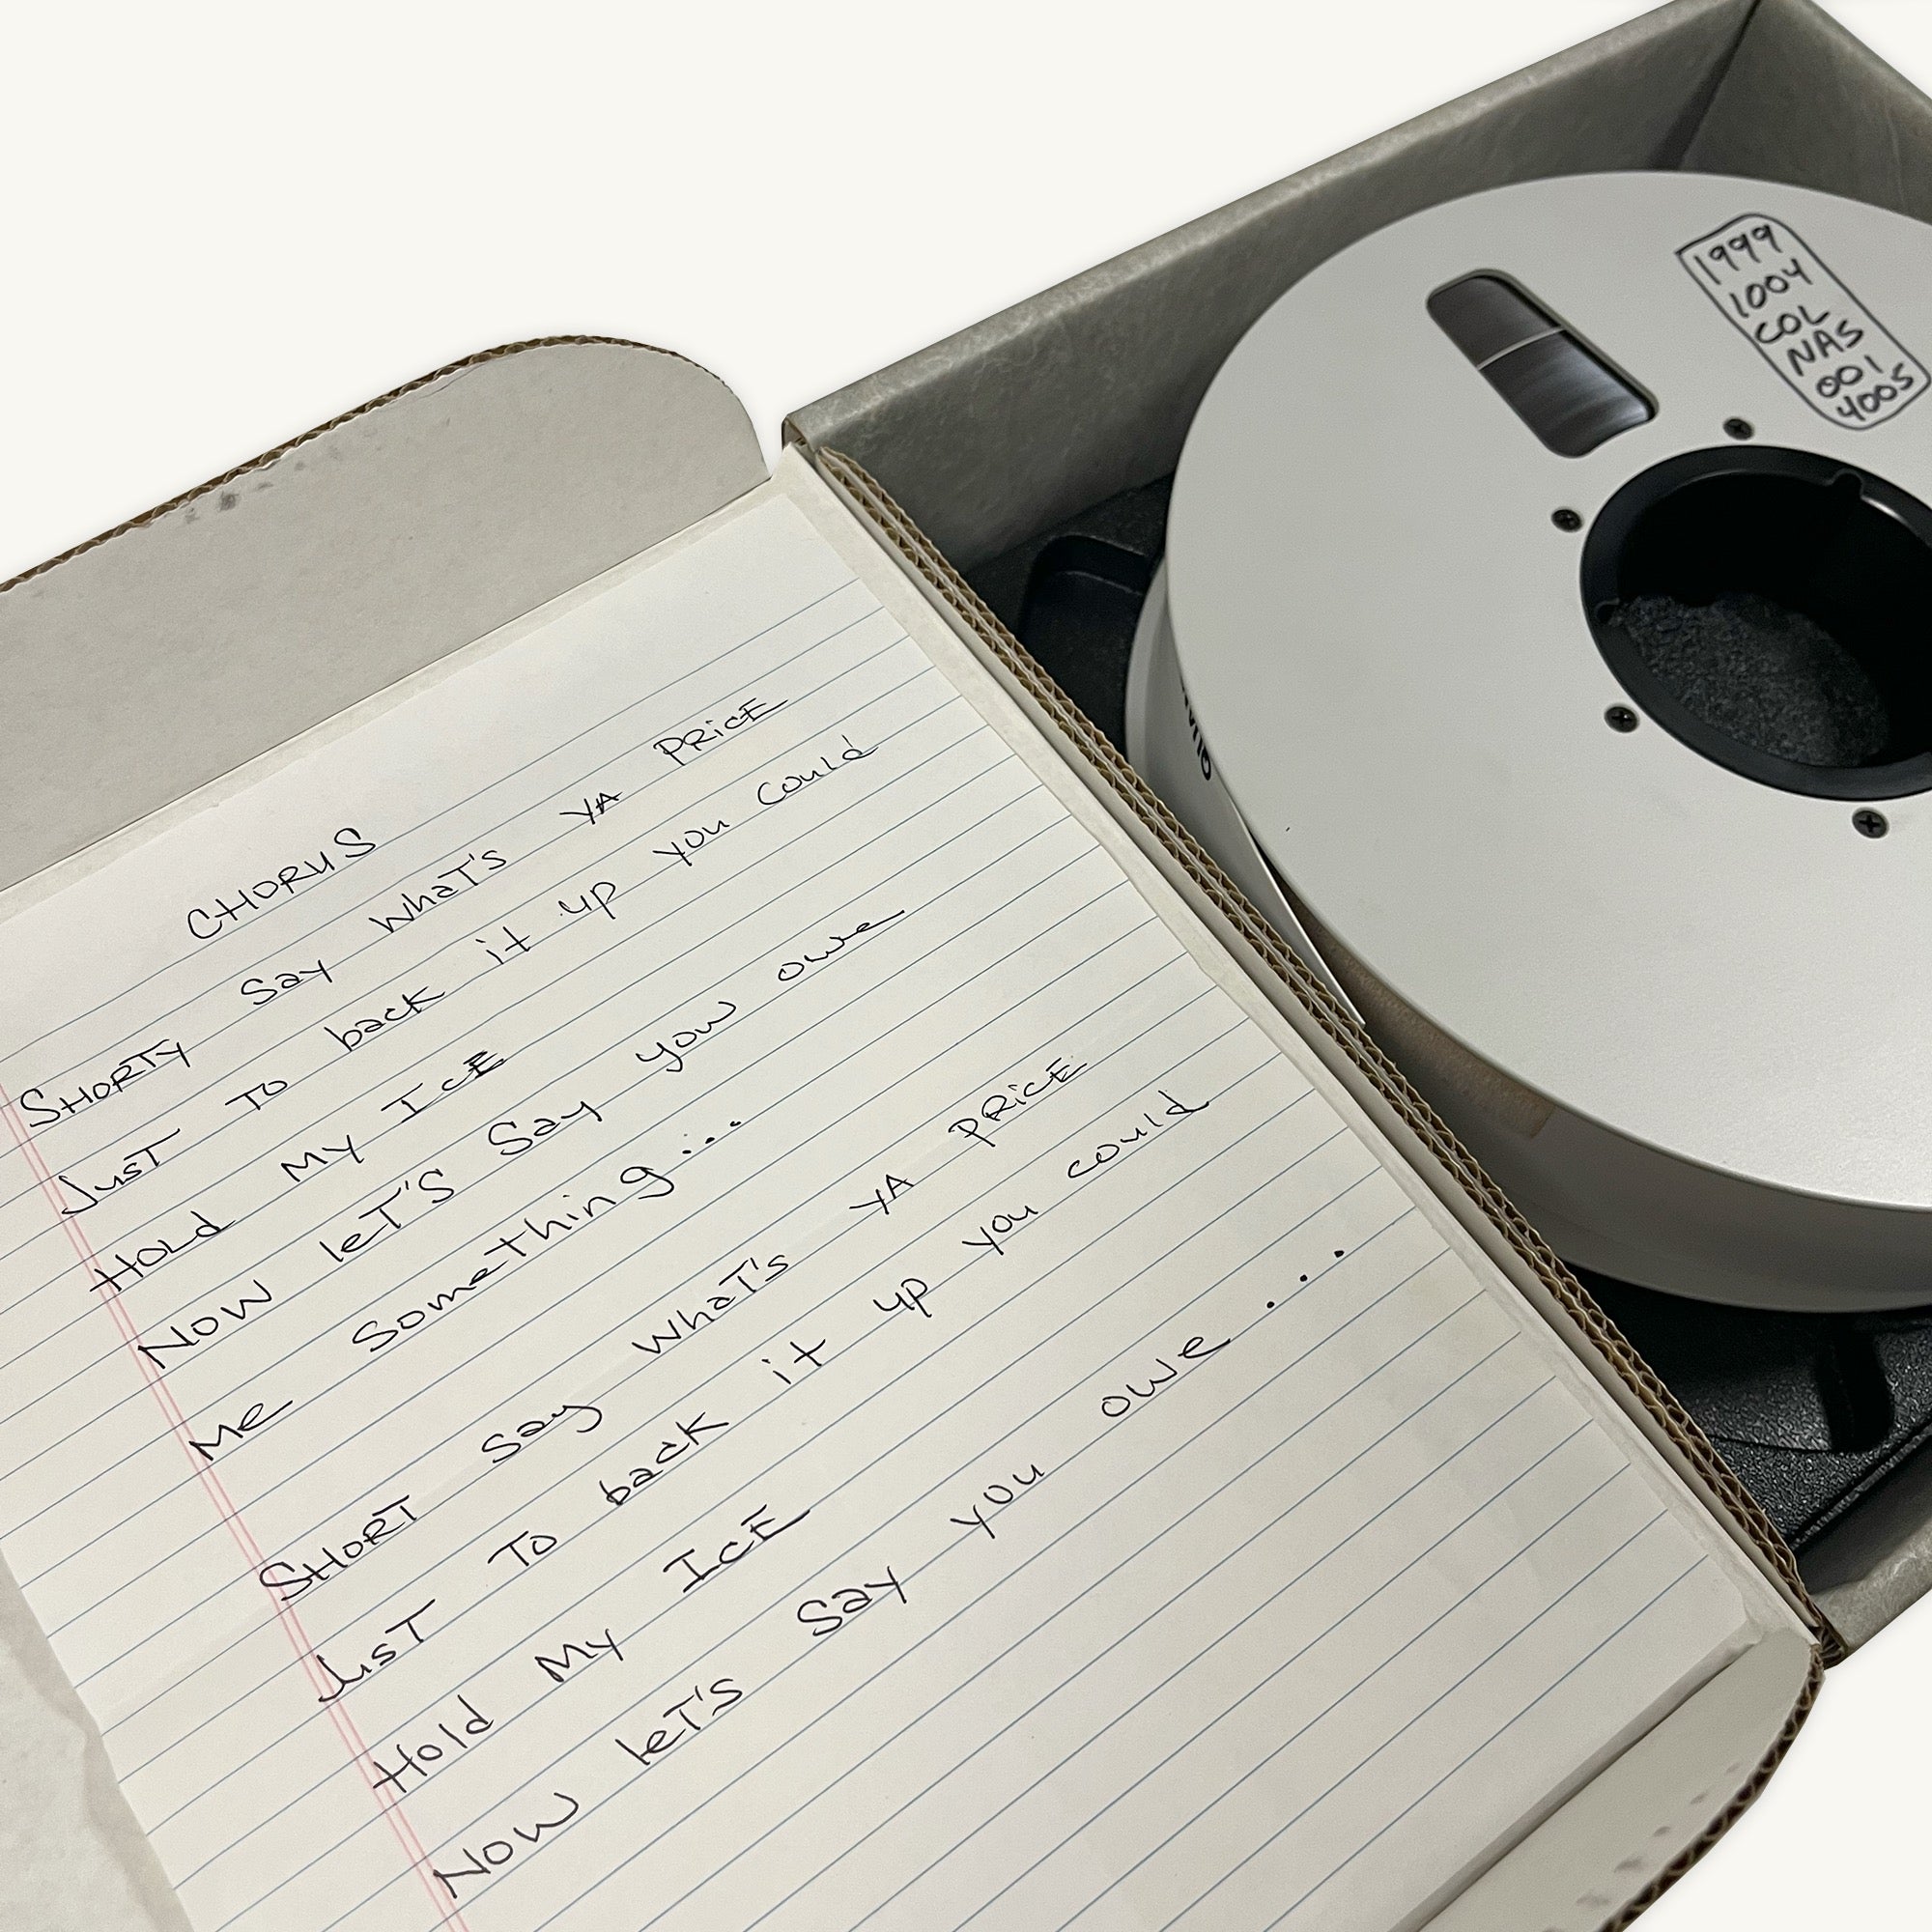 CHORUS
SHORTY Say WhaT'S YA PRiCE
JusT TO back it up you could
HOLd MY ICE
NOW leT'S Say you owe
Me Something...
SHORT Say WhaT's YA PRiCE
JusT TO back it up you could
Hold My ICE
NOW leT'S Say you owe...
1999
1004
COL
NAS
001
4005